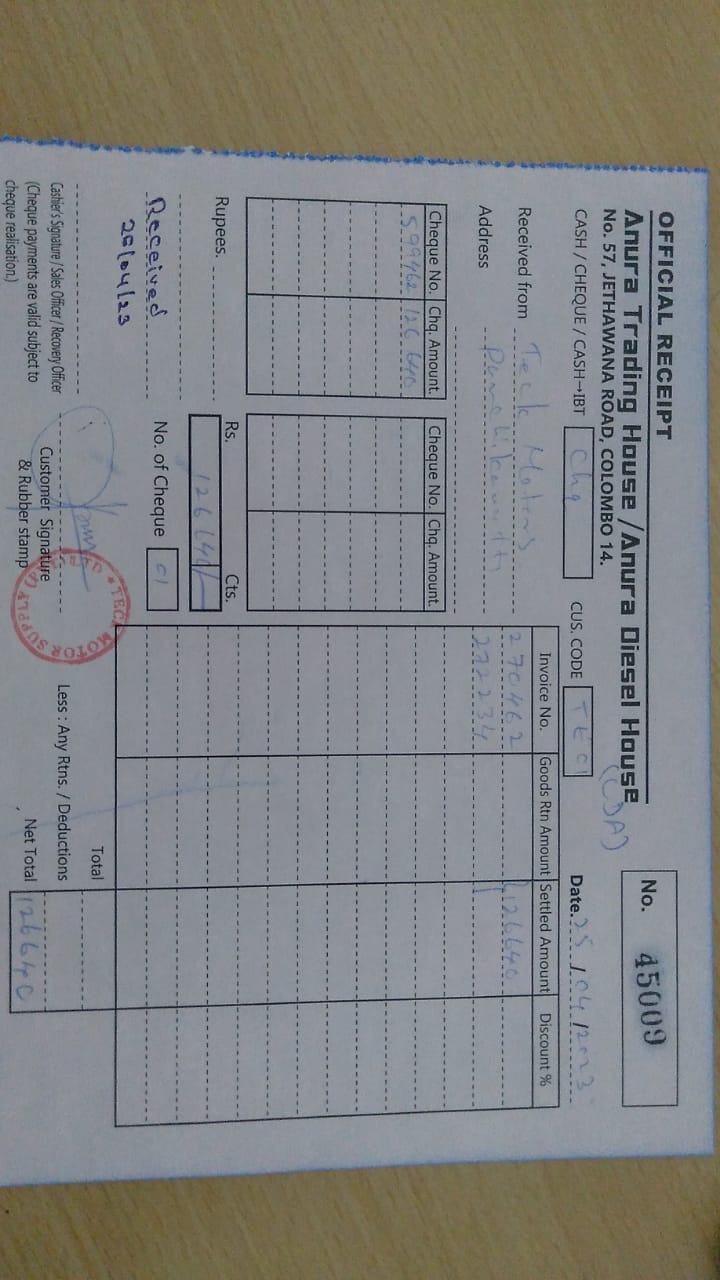 OFFICIAL RECEIPT
Anura Trading House / Anura Diesel House
No. 57, JETHAWANA ROAD, COLOMBO 14.
No. 45009
CASH / CHEQUE / CASH→IBT Chq
CUS. CODE TEC1
Date. 25 / 04 / 2023
Received from Teck Motors
Address
Cheque No. Chq. Amount. Cheque No. Chq. Amount.
599462 126 640
Invoice No. Goods Rtn Amount Settled Amount Discount %
270462 126640
272234
Rupees.
Rs. Cts.
126640/-
Received
26/04/23
No. of Cheque 01
Cashier's Signature / Sales Officer / Recovery Officer
(Cheque payments are valid subject to
cheque realisation.)
Customer Signature
& Rubber stamp
TEC MOTOR SUPPLI
Total
Less : Any Rtns. / Deductions
Net Total 126640